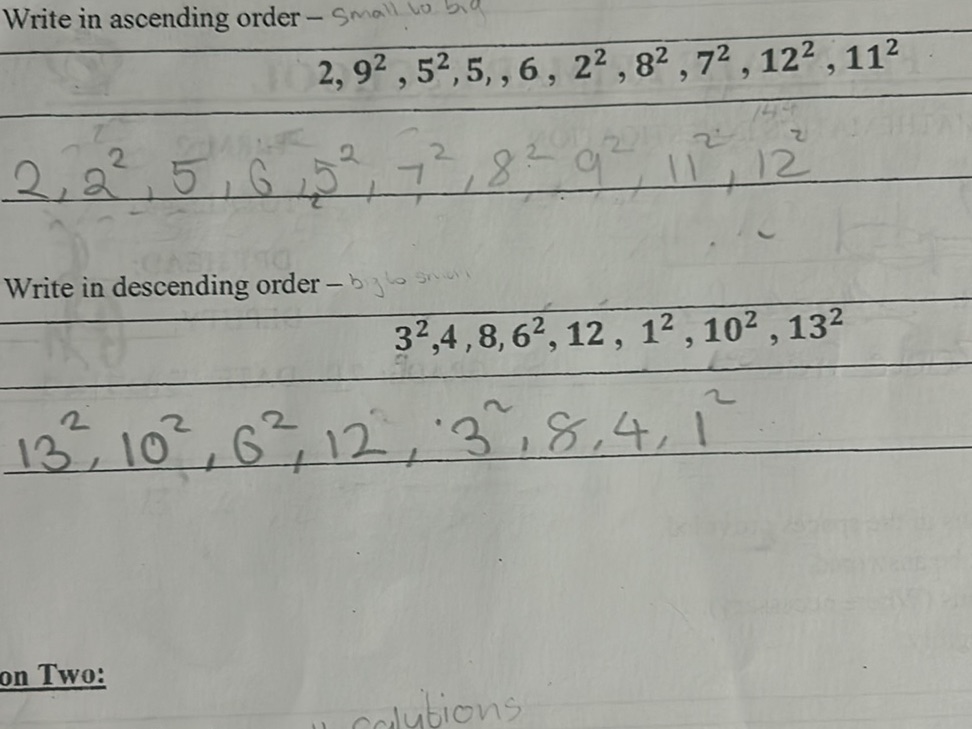 Write in ascending order – Small to big
2, 9² , 5², 5, , 6 , 2² , 8² , 7² , 12² , 11²
144
2, 2², 5, 6, 5², 7², 8², 9², 11², 12²
Write in descending order – big to small
3²,4 , 8, 6², 12 , 1² , 10² , 13²
13², 10², 6², 12, 3², 8, 4, 1²
on Two:
solutions